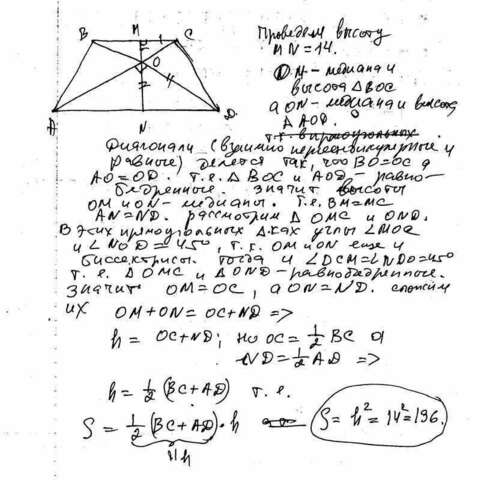 B M C
1
O
2 4
A N D
Проведем высоту
MN=14.
OM-медиана и
высота ΔBOC
а ON-медиана и высота
ΔAOD.
Диагонали (взаимно перпендикулярные и
равные) делятся так, что BO=OC а
AO=OD. т.е. Δ BOC и AOD-равно-
бедренные. значит высоты
OM и ON- медианы. т.е. BM=MC
AN=ND. рассмотрим Δ OMC и OND.
В этих прямоугольных Δках углы ∠MOC
и ∠NOD=45°, т.к. OM и ON еще и
биссектрисы. тогда и ∠OCM=∠NDO=45°
т.е. ΔOMC и ΔOND-равнобедренные.
значит OM=OC, а ON=ND. сложим
их OM+ON=OC+ND =>
h = OC+ND; но OC=1/2 BC а
ND=1/2 AD =>
h=1/2 (BC+AD) т.е.
S = 1/2 (BC+AD)·h S=h²=14²=196.
h